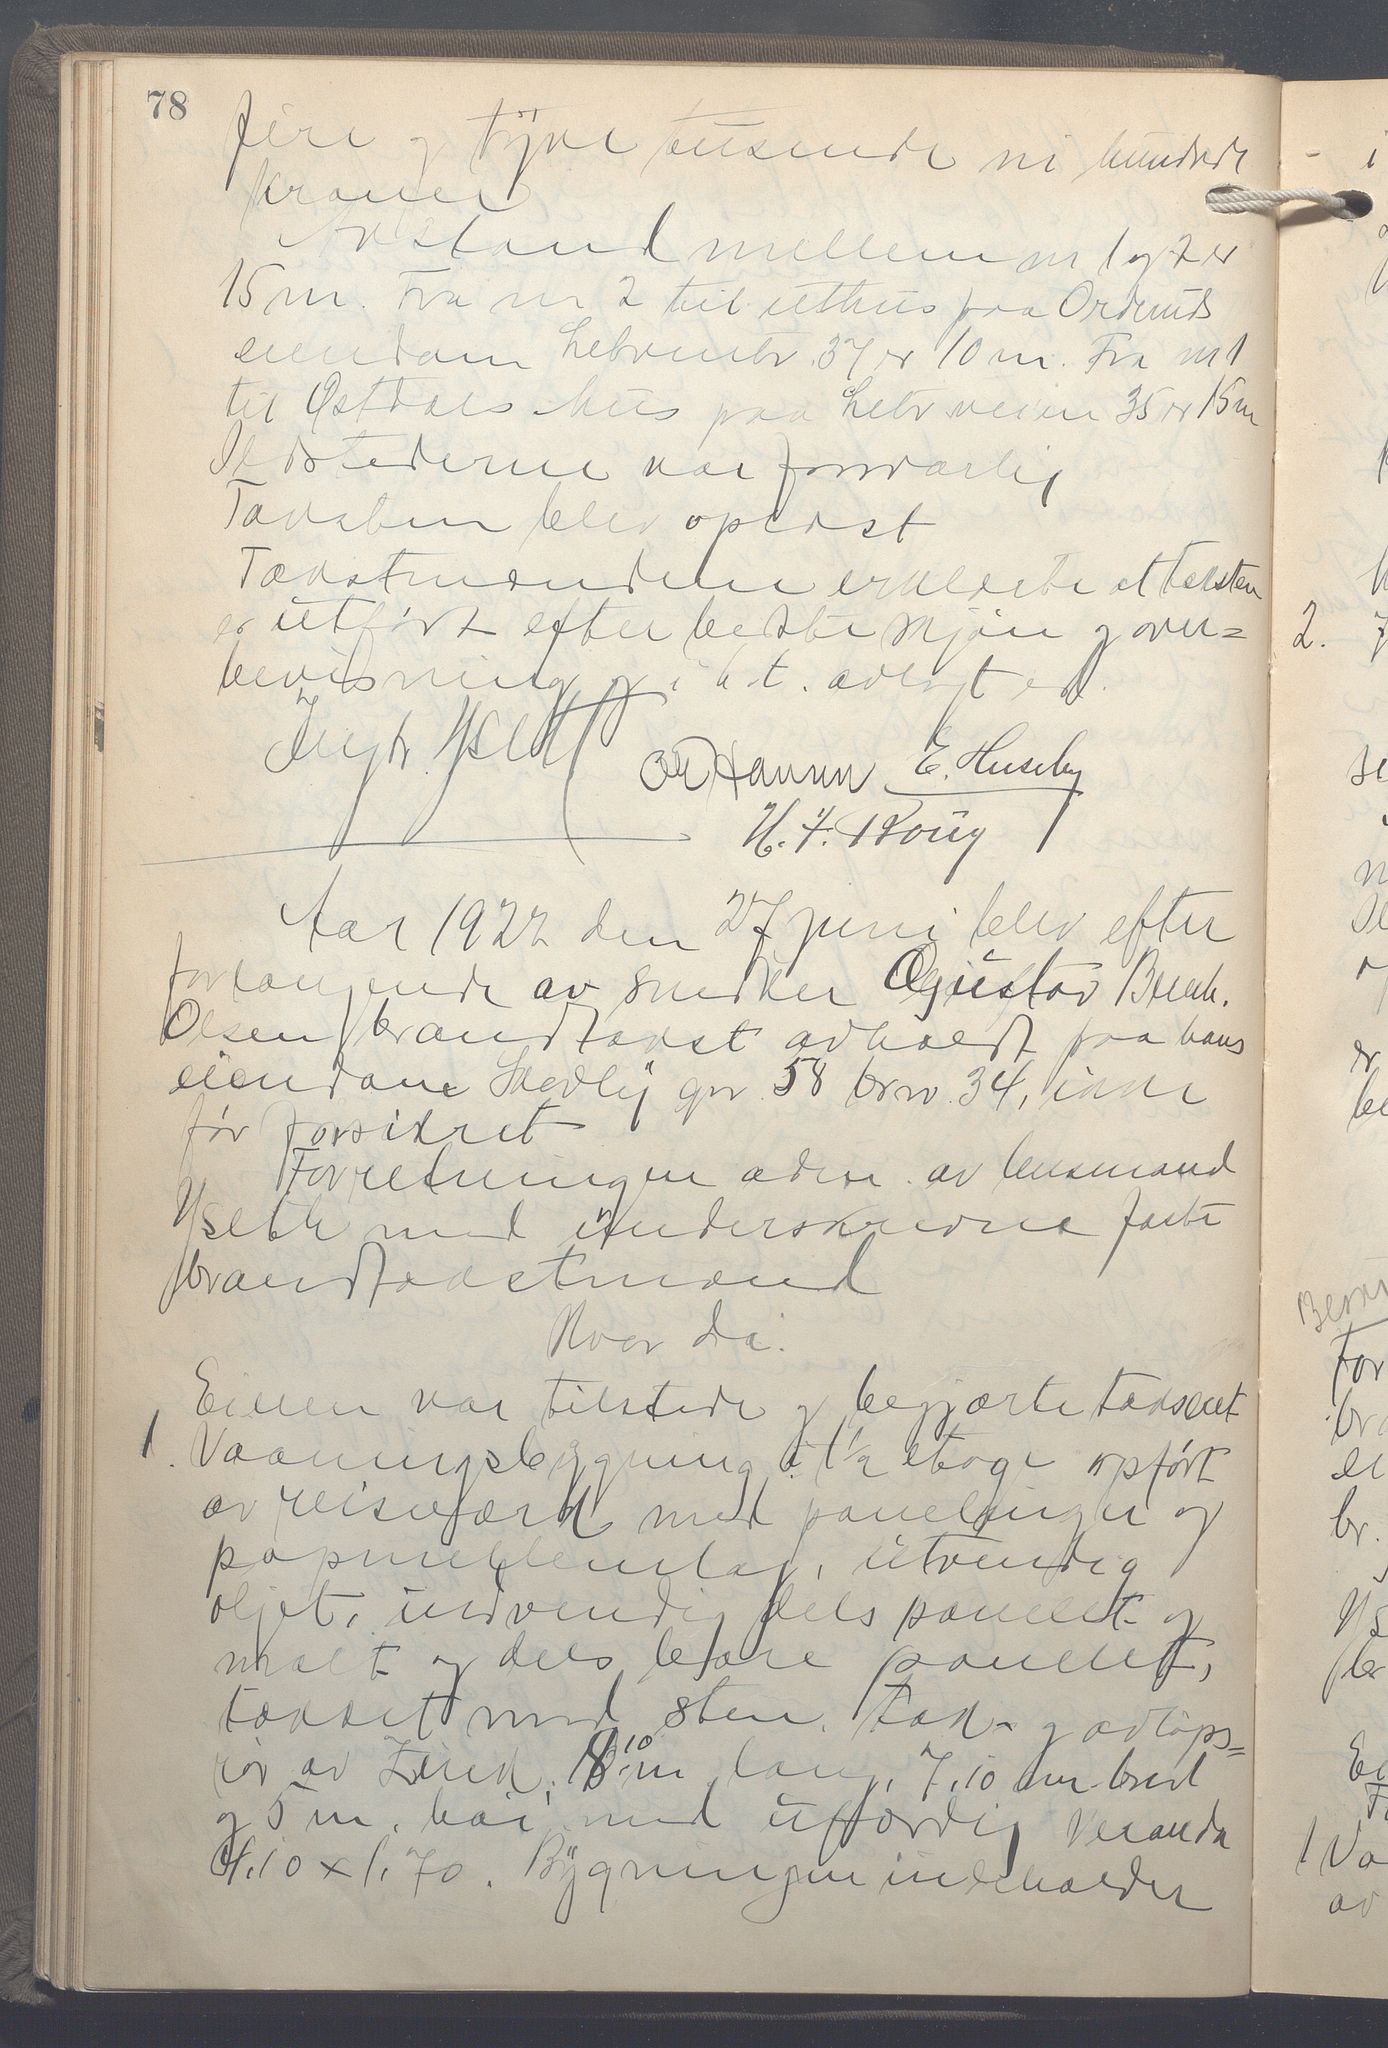 78
fire og tyve tusende ni hundrede
kroner
Avstand mellem nr 1 og 2 er
15 m. Fra nr 2 til uthus paa Ordruds
eiendom 37 er 10 m. Fra nr 1
til Østdals hus paa veien 35 er 15 m
Ildstederne var forsvarlig
Taksten blev oplæst
Takstmændene erklærte at taksten
er utført efter bedste skjøn og over=
bevisning og i h.t. avlagt ed.
E. Huseby
Hansen
H. F.
Aar 1922 den 27 juni blev efter
forlangende av snedker Gustav
Olsen brandtakst avholdt paa hans
eiendom gnr 58 brnr. 34, ikke
før forsikret
Forretningen adm. av lensmand
Yseth med underskrevne faste
brandtakstmænd
Hvor da:
Eieren var tilstede og begjærte takseret
1. Vaaningsbygning i 1½ etage opført
av reisverk med panelinger og
papmellemlag, utvendig
oljet, indvendig dels panelt og
malt og dels bare panelt,
tækket med sten. Tak- og avløps=
rør av Zink, 8,10 m lang, 7,10 m bred
og 5 m. høi med uferdig Veranda
4,10 x 1,70. Bygningen indeholder